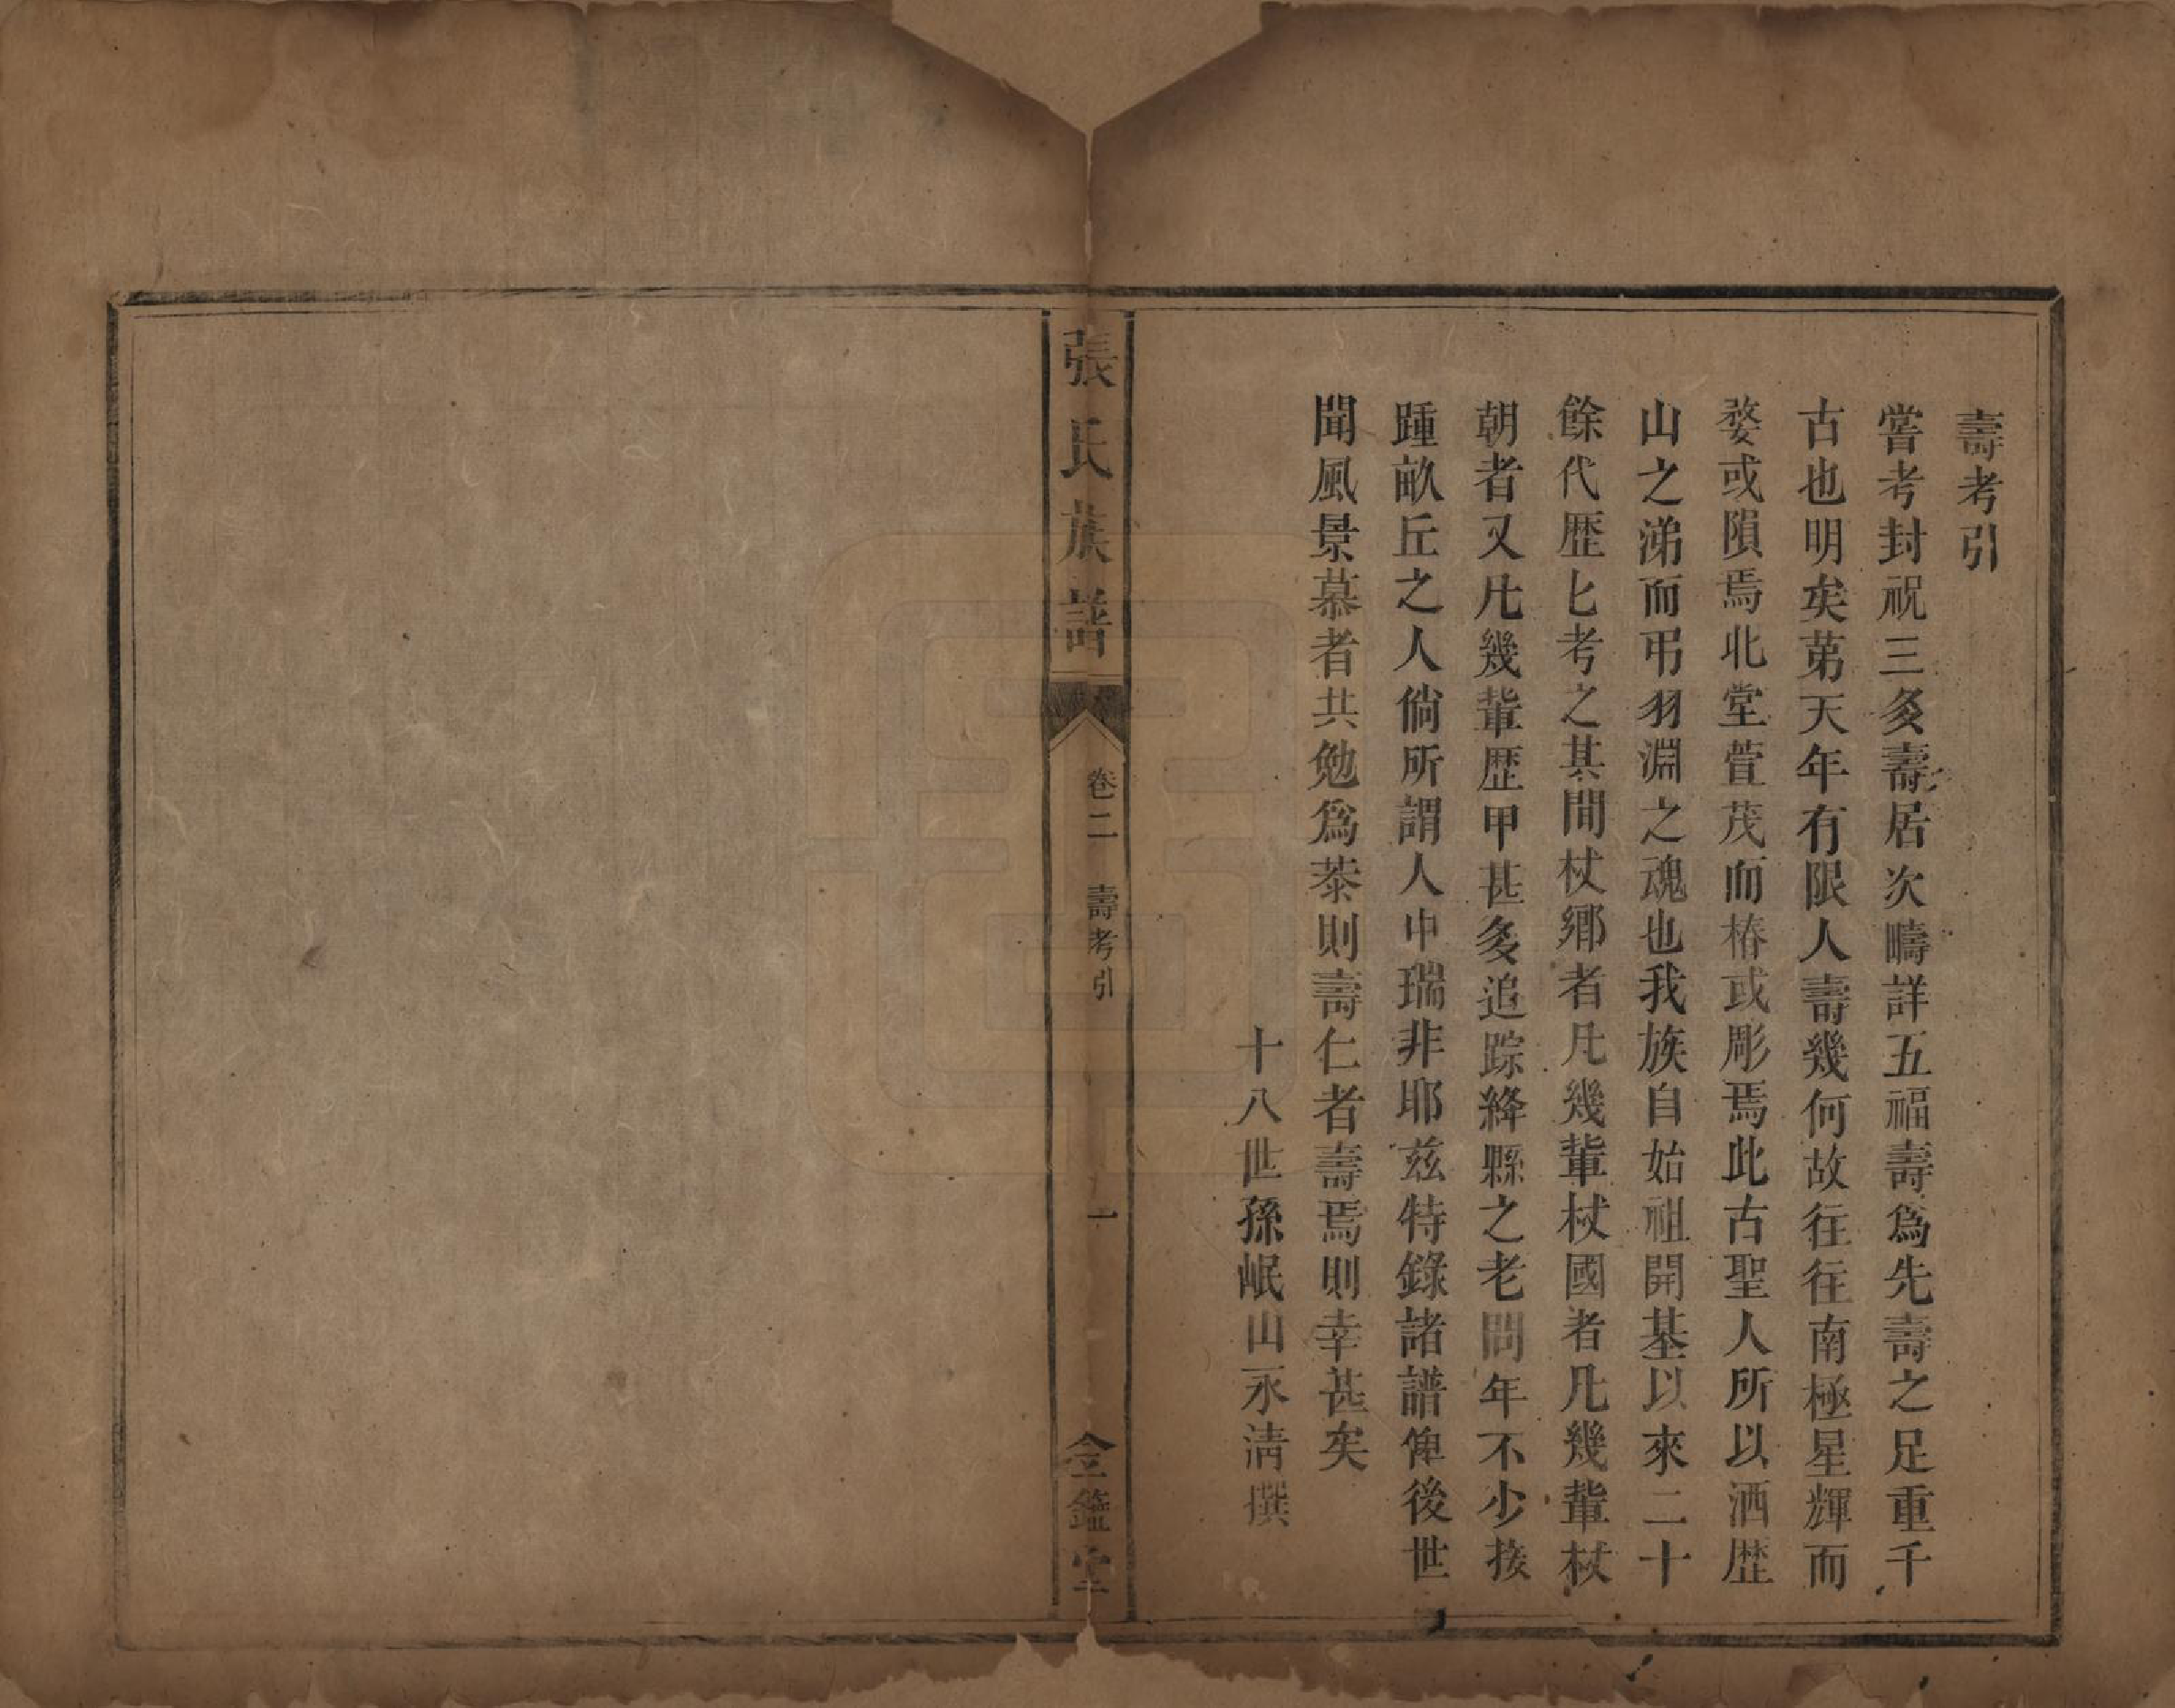 壽考引
嘗考封祝三多壽居次疇詳五福壽爲先壽之足重千
古也明矣苐天年有限人壽幾何故往往南極星輝而
婺或隕焉北堂萱茂而椿或彫焉此古聖人所以洒歴
山之涕而弔羽淵之魂也我族自始祖開基以來二十
餘代歴匕考之其間杖鄉者凡幾軰杖國者凡幾軰杖
朝者又凡幾軰歴甲甚多追踪絳縣之老問年不少接
踵畝丘之人倘所謂人中瑞非耶玆特錄諸譜俾後世
聞風景慕者共勉爲恭則壽仁者壽焉則幸甚矣
十八世孫岷山永淸撰
張氏族譜
卷二　壽考引
一
金鑑堂